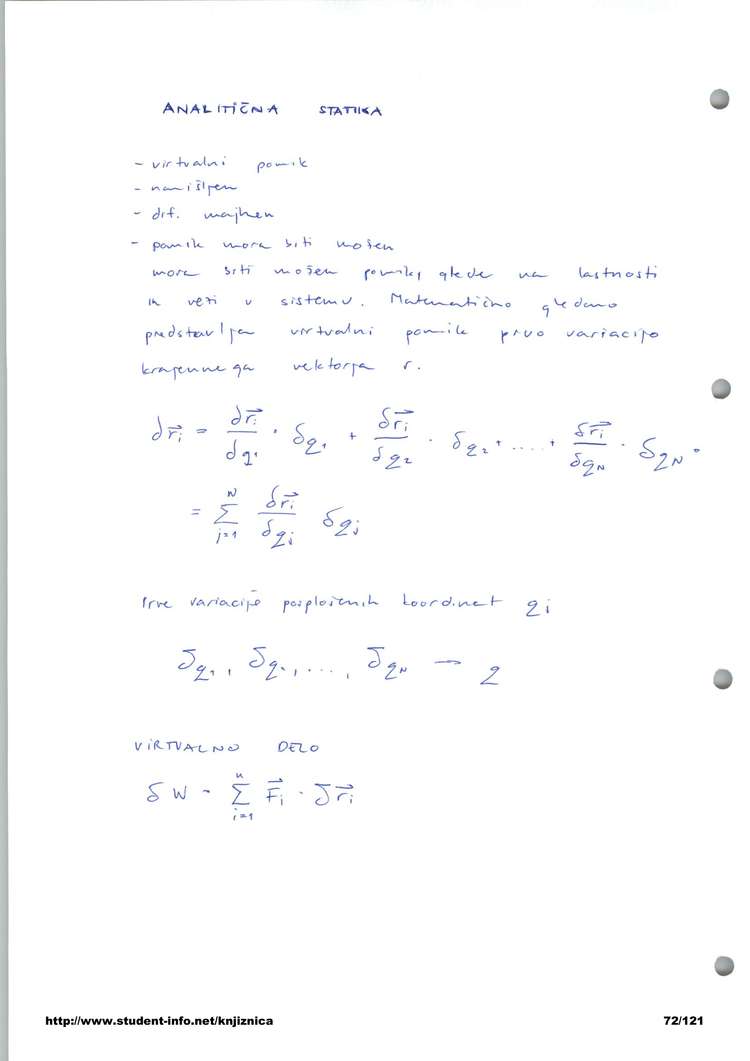 ANALITIČNA STATIKA
- virtualni pomik
- namišljen
- dif. majhen
- pomik mora biti možen
mora biti možen pomik, glede na lastnosti
in vezi v sistemu. Matematično gledano
predstavlja virtualni pomik prvo variacijo
krajevnega vektorja r.
δr⃗ᵢ = δr⃗ᵢ/δq₁ · δq₁ + δr⃗ᵢ/δq₂ · δq₂ + .... + δr⃗ᵢ/δq_N · δq_N =
= Σ_{j=1}^{N} δr⃗ᵢ/δqⱼ δqⱼ
Prve variacije posploženih koordinat qᵢ
δq₁, δq₂, ..., δq_N – q
VIRTUALNO DELO
δW = Σ_{i=1}^{n} F⃗ᵢ · δr⃗ᵢ
http://www.student-info.net/knjiznica 72/121